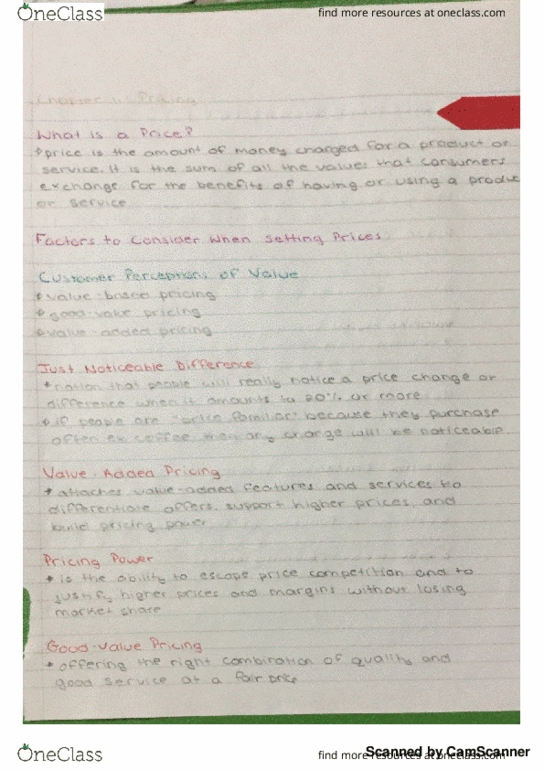 OneClass
find more resources at oneclass.com
Chapter 11: Pricing
What is a Price?
price is the amount of money charged for a product or
service. It is the sum of all the values that consumers
exchange for the benefits of having or using a produc
or service
Factors to Consider When Setting Prices
Customer Perceptions of Value
value-based pricing
good-value pricing
value-added pricing
Just Noticeable Difference
notion that people will really notice a price change or
difference when it amounts to 20% or more
if people are "price familiar" because they purchase
often ex coffee, then any change will be noticeable
Value-Added Pricing
attaches value-added features and services to
differentiate offers, support higher prices, and
build pricing power
Pricing Power
is the ability to escape price competition and to
justify higher prices and margins without losing
market share
Good-Value Pricing
offering the right combination of quality and
good service at a fair price
OneClass
find more resources at oneclass.com
Scanned by CamScanner